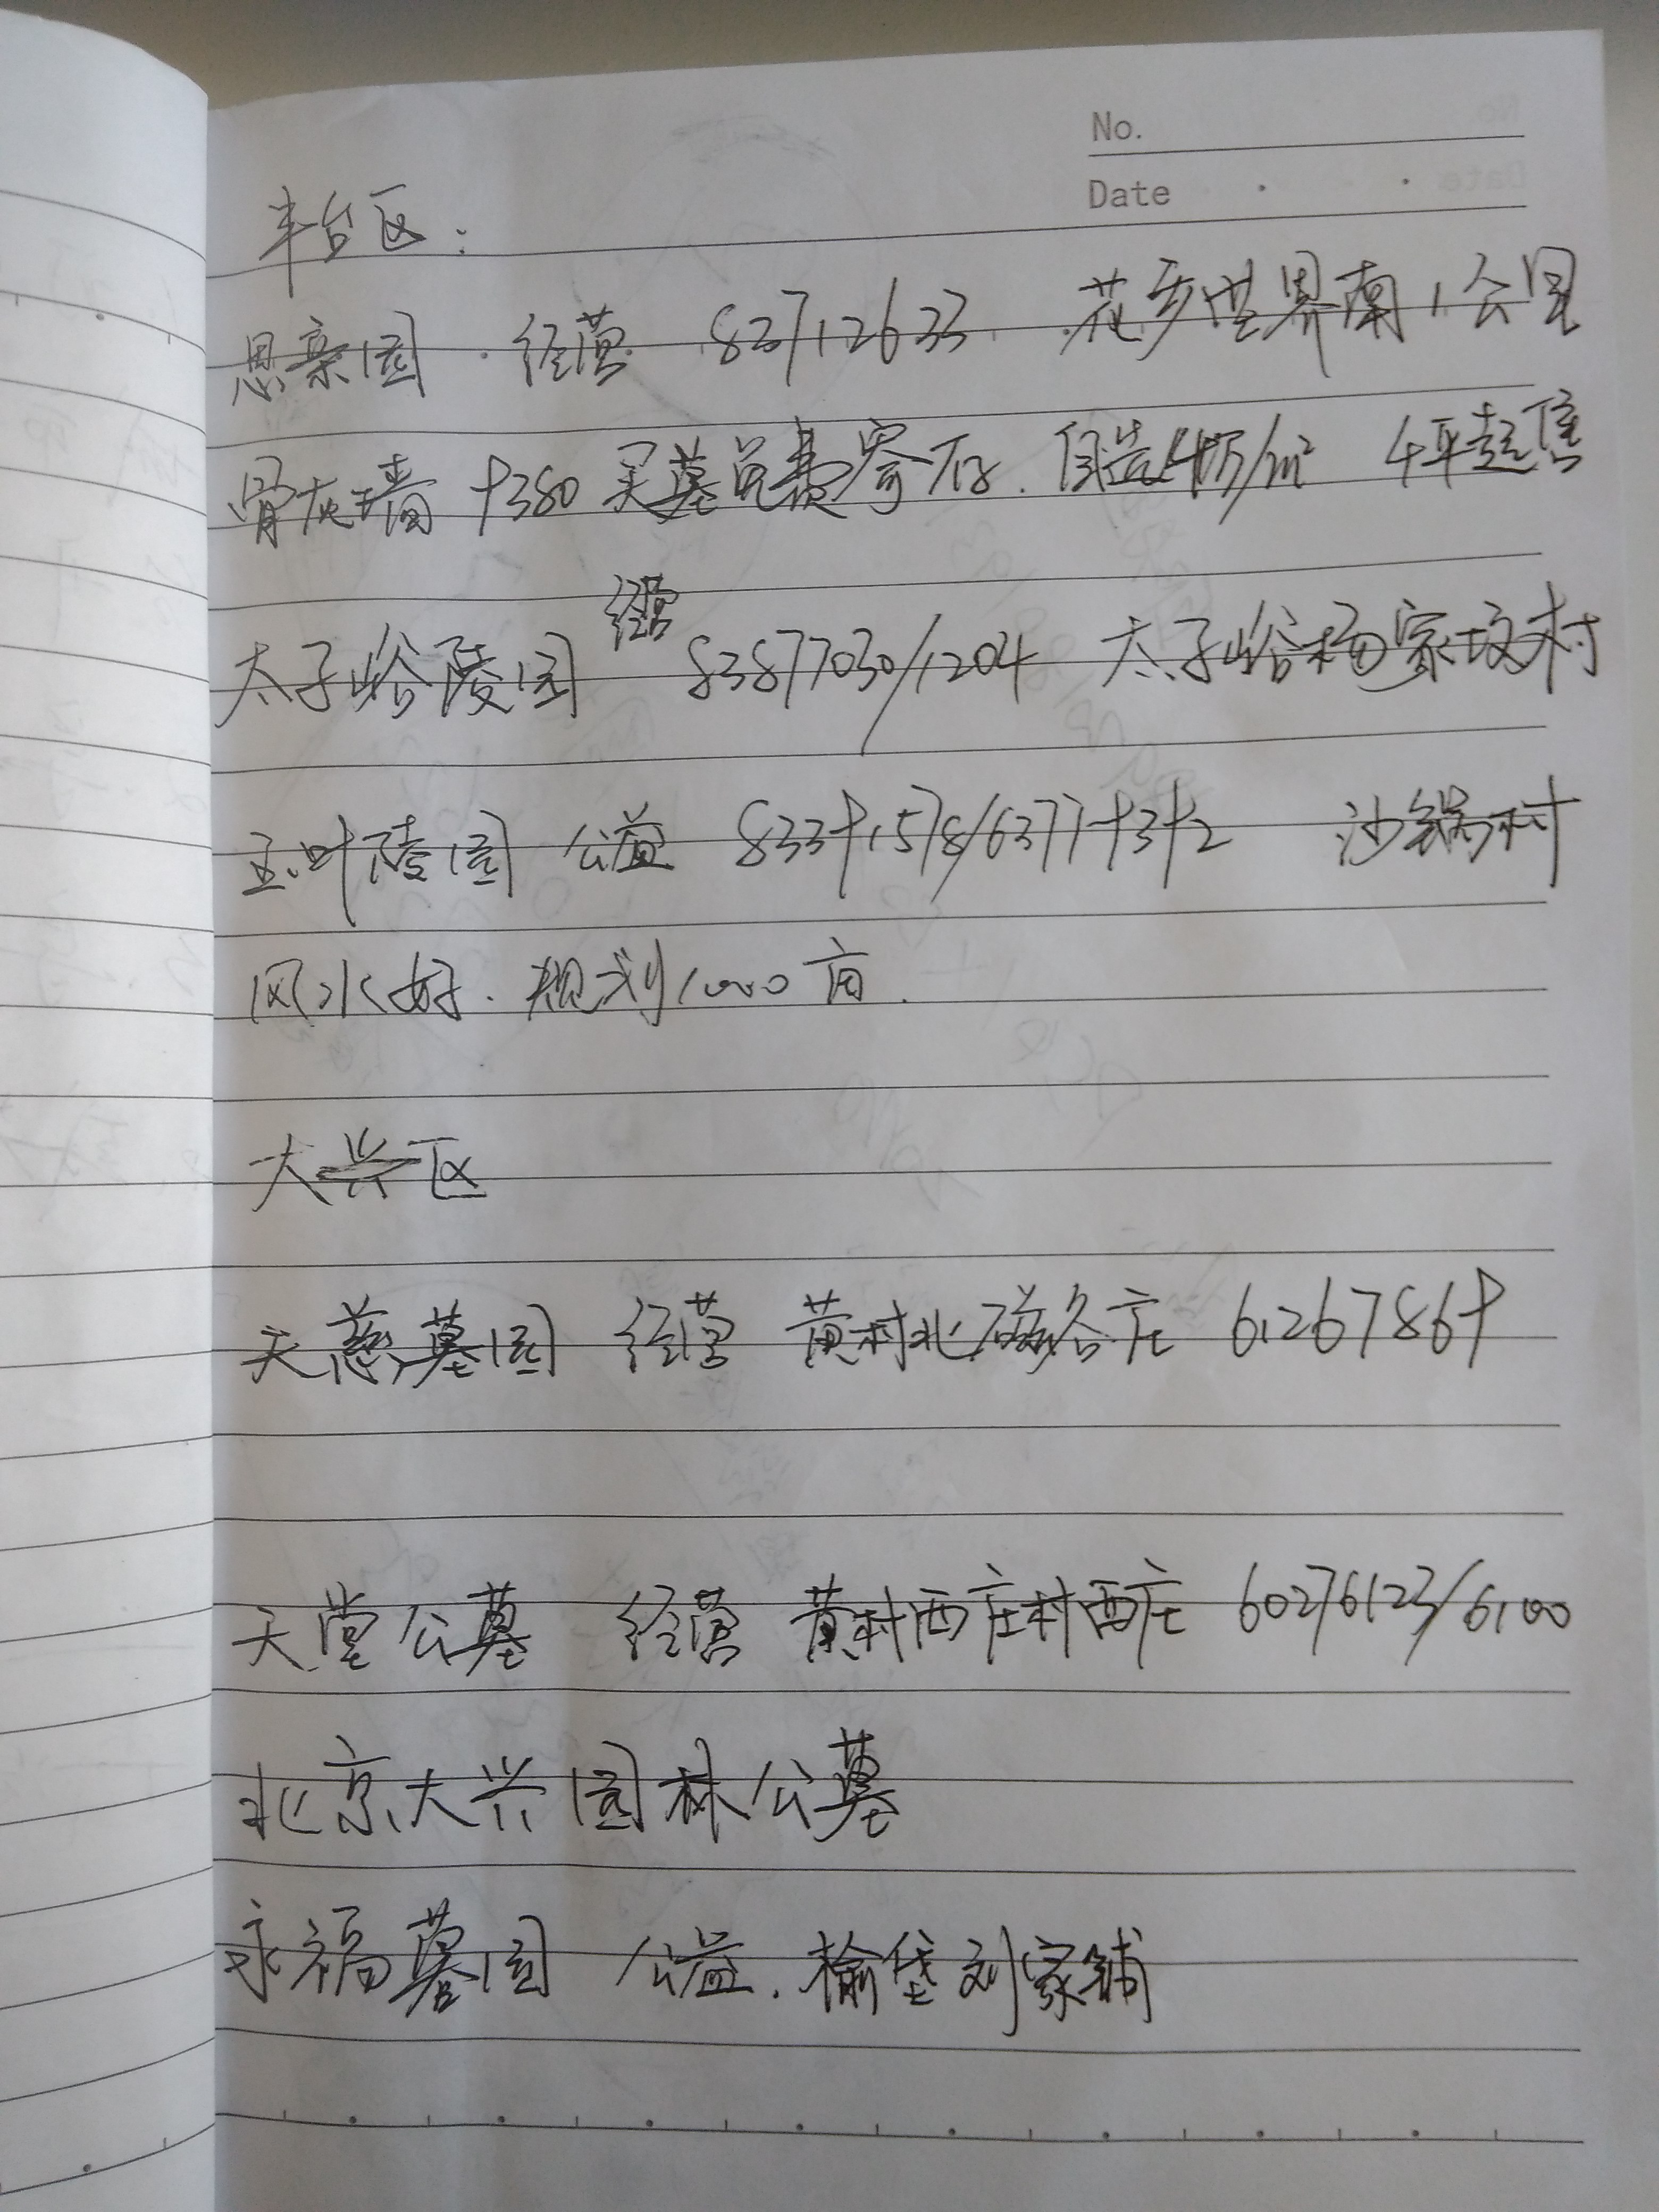 No.
Date
丰台区：
思亲园 . 经营. 83712633 花乡世界南1公里
骨灰墙 9380 买墓免费寄存. 自选4万/m² 4平起售
经营
太子峪陵园 83877030/1204 太子峪杨家坟村
玉叶陵园 公益 83391578/63779392 沙锅村
风水好. 规划1000亩.
大兴区
天慈墓园 经营 黄村北磁各庄 61267869
天堂公墓 经营 黄村西庄村西庄 60276123/6100
北京大兴园林公墓
永福墓园 公益. 榆垡刘家铺